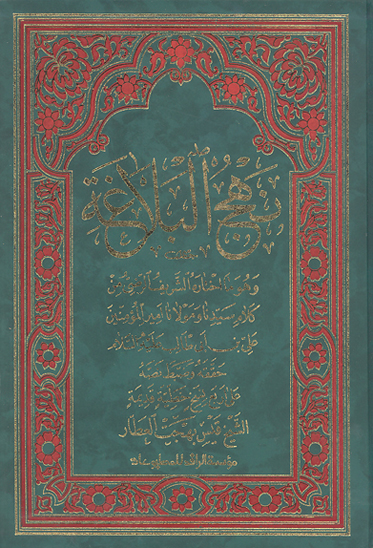 نهج البلاغة
وهو ما اختاره الشريف الرضي من
كلام سيدنا ومولانا أمير المؤمنين
علي بن أبي طالب عليه السلام
حققه وضبط نصه
على أربع نسخ خطية قديمة
الشيخ قيس بهجت العطار
مؤسسة الرافد للمطبوعات